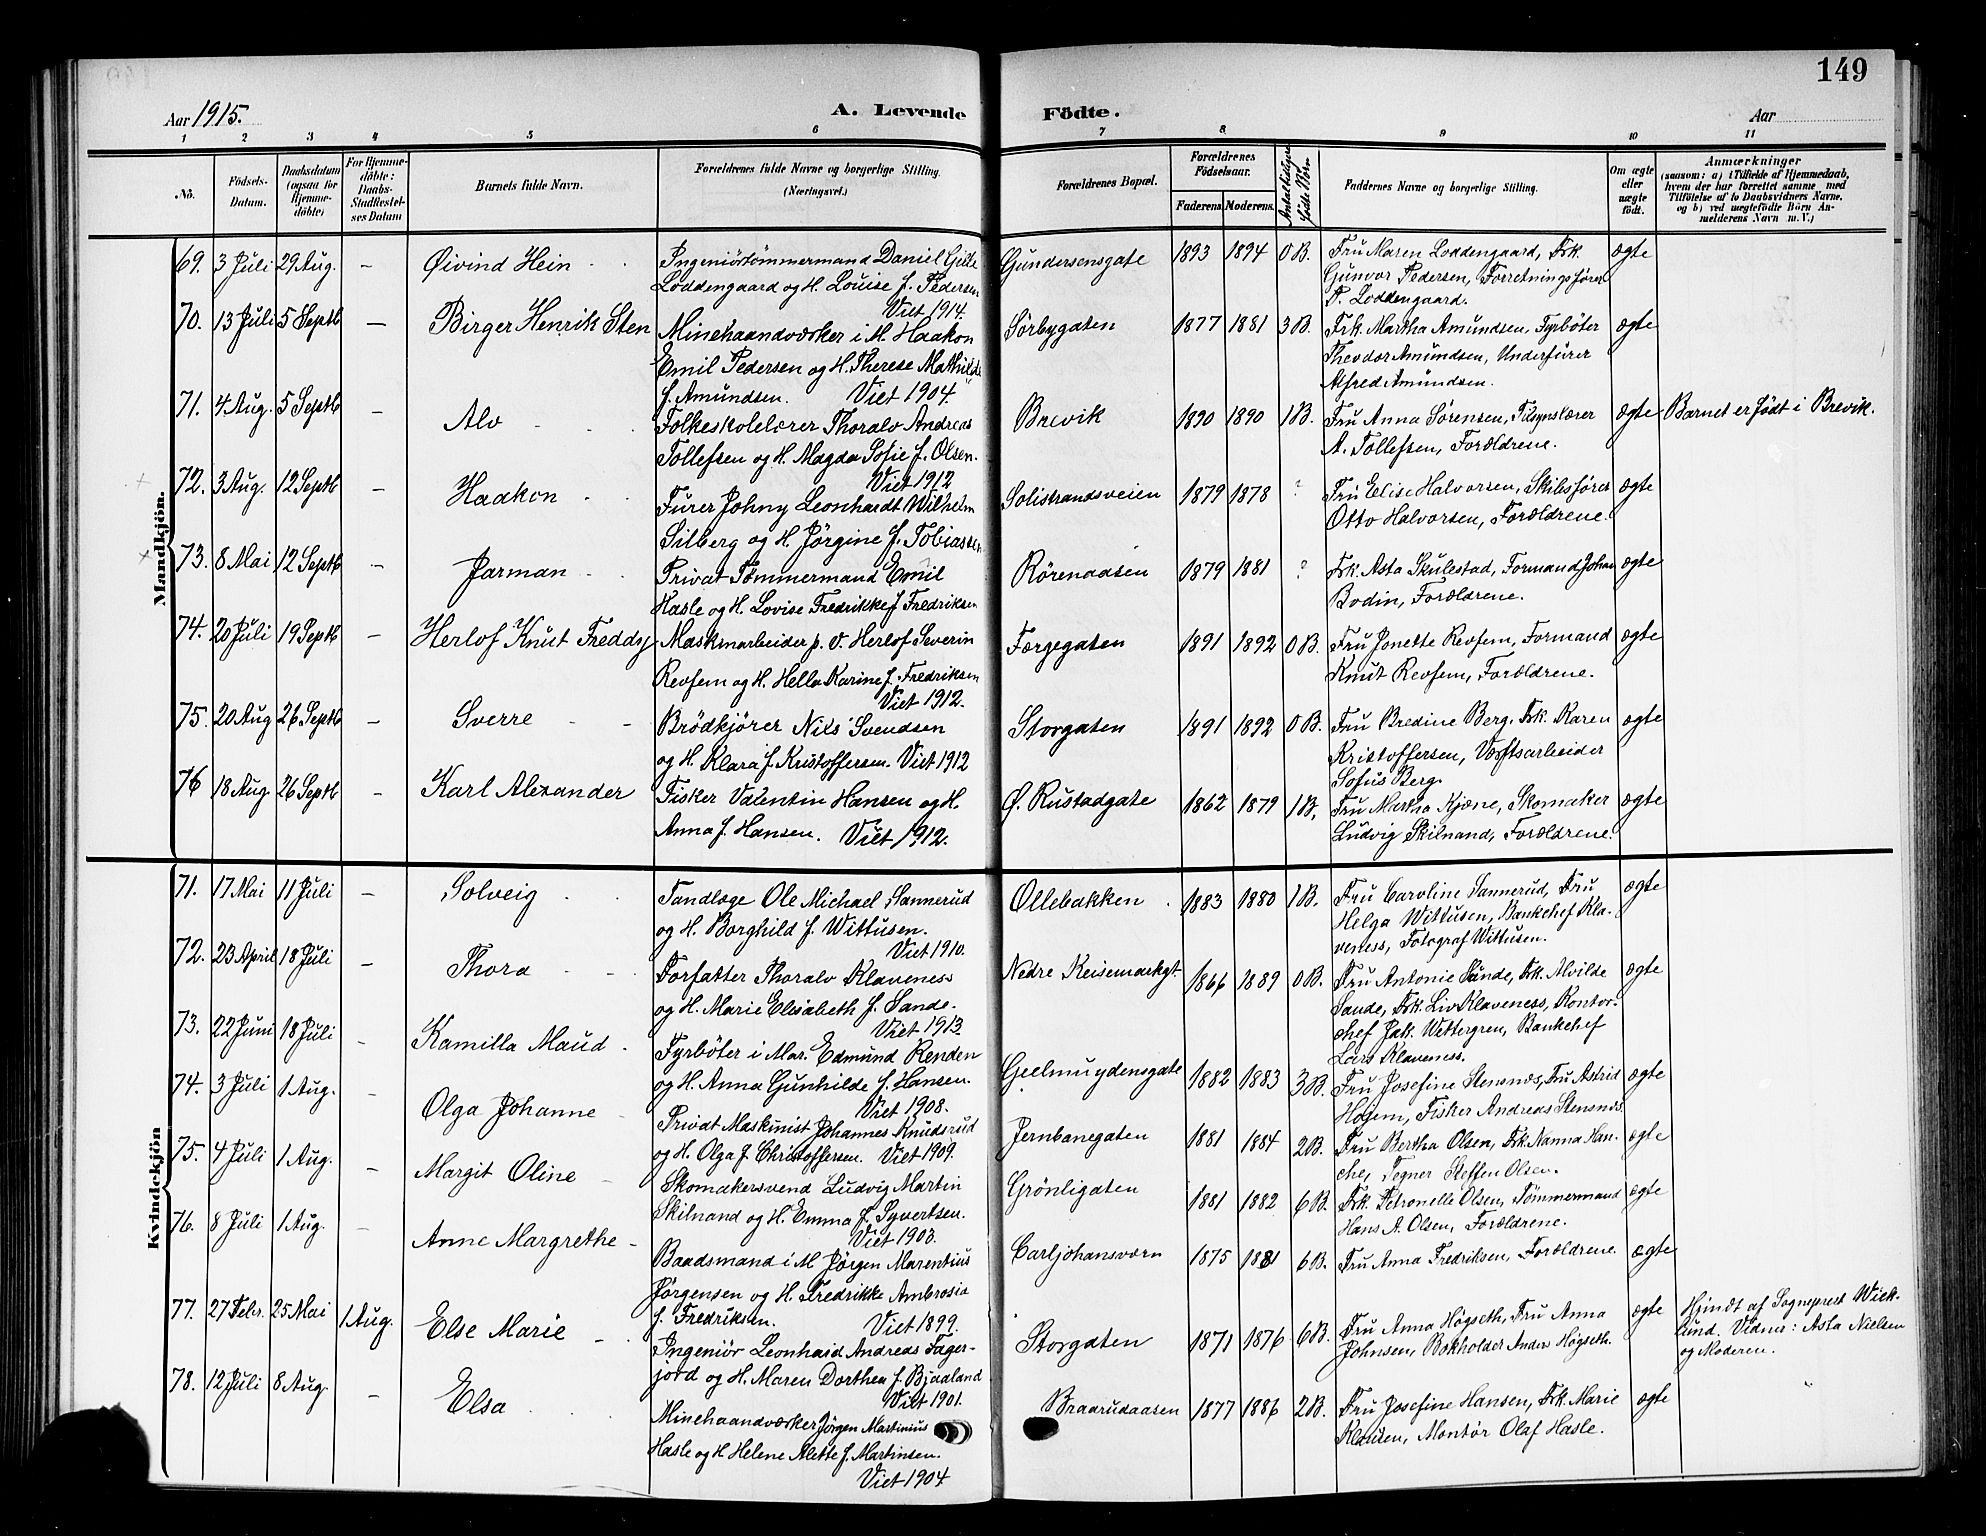 149
Aar 1915.
A. Levende Födte.
Aar
1 2 3 4 5 6 7 8 9 10 11
No.
Födsels-Datum.
Daabsdatum (ogsaa for Hjemmedöbte)
For Hjemmedöbte: Daabs-Stadfæstelses Datum
Barnets fulde Navn.
Forældrenes fulde Navne og borgerlige Stilling. (Næringsvei.)
Forældrenes Bopæl.
Forældrenes Födselsaar.
Faderens. Moderens.
Antal tidligere födte Børn
Faddernes Navne og borgerlige Stilling.
Om ægte eller uægte födt.
Anmærkninger
(saasom: a) i Tilfælde af Hjemmedaab, hvem der har forrettet samme, med Tilföielse af to Daabsvidners Navne, og b) ved uægtefödte Börn Anmelderens Navn m. V.)
Mandkjön.
69. 3 Juli 29 Aug. — Øivind Hein
Ingeniørtømmermand Daniel Gille
Loddengaard og H. Louise f. Pedersen
Viet 1914.
Gundersensgate 1893 1894 0 B.
Fru Maren Loddengaard, Frk.
Gunvor Pedersen, Forretningsfører
T. Loddengaard.
ægte
70. 13 Juli 5 Septb — Birger Henrik Sten
Minehaandværker i M. Haakon
Emil Pedersen og H. Therese Mathilde
f. Amundsen. Viet 1904.
Sørbygaten 1877 1881 3 B.
Frk. Martha Amundsen, Fyrbøter
Theodor Amundsen, Underfurer
Alfred Amundsen.
ægte
71. 4 Aug. 5 Septb — Alv
Folkeskolelærer Thoralv Andreas
Tollefsen og H. Magda Sofie f. Olsen.
Viet 1912
Brevik 1890 1890 1 B.
Fru Anna Sørensen, Tilsynslærer
A. Tollefsen, Forældrene.
ægte Barnet er født i Brevik.
72. 3 Aug. 12 Septb — Haakon
Furer Johny Leonhardt Wilhelm
Silberg og H. Jørgine f. Tobiassen
Solistrandsveien 1879 1878 ?
Fru Elise Halvorsen, Skibsfører
Otto Halvorsen, Forældrene.
ægte
73. 8 Mai 12 Septb — Jarman
Privat Tømmermand Emil
Hasle og H. Lovise Fredrikke f. Fredriksen
Rørenaasen 1879 1881 ?
Frk. Asta Skulestad, Formand Johan
Bodin, Forældrene.
ægte
74. 20 Juli 19 Septb — Herlof Knut Freddy
Maskinarbeider p. V. Herlof Severin
Revfem og H. Hella Karine f. Fredriksen
Viet 1912.
Færgegaten 1891 1892 0 B.
Fru Jonette Revfem, Formand
Knut Revfem, Forældrene.
ægte
75. 20 Aug 26 Septb — Sverre
Brödkjører Nils Svendsen
og H. Klara f. Kristoffersen. Viet 1912
Storgaten 1891 1892 0 B.
Fru Bredine Berg. Frk. Karen
Kristoffersen, Værftsarbeider
Sofus Berg.
ægte
76 18 Aug. 26 Septb — Karl Alexander
Fisker Valentin Hansen og H.
Anna f. Hansen. Viet 1912.
Ø. Rustadgate 1862 1879 1 B.
Fru Martha Kjæne, Skomaker
Ludvig Skilnand, Forældrene.
ægte
Kvindekjön
71. 17 Mai 11 Juli — Solveig
Tandlæge Ole Michael Sannerud
og H. Borghild f. Wittusen.
Viet 1910.
Ollebakken 1883 1880 1 B.
Fru Caroline Sannerud, Fru
Helga Wittusen, Bankchef Kla-
veness, Fotograf Wittusen.
ægte
72. 23 April 18 Juli — Thora
Forfatter Thoralv Klaveness
og H. Marie Elisabeth f. Sande.
Viet 1913.
Nedre Keisemarkgt. 1866 1889 0 B.
Fru Antonie Sande, Frk. Alvilde
Sande, Frk. Liv Klaveness, Kontor-
chef Jak. Wettergren, Bankchef
Lars Klaveness.
ægte
73. 22 Juni 18 Juli — Kamilla Maud
Fyrbøter i Mar. Edmund Renden
og H. Anna Gunhilde f. Hansen.
Viet 1908.
Geelmuydensgate 1882 1883 3 B.
Fru Josefine Stensnæs, Fru Astrid
Hogem, Fisker Andreas Stensnæs.
ægte
74. 3 Juli 1 Aug. — Olga Johanne
Privat Maskinist Johannes Knudsrud
og H. Olga f. Christoffersen. Viet 1909.
Jernbanegaten 1881 1884 2 B.
Fru Bertha Olsen, Frk. Nanna Han-
che, Tegner Steffen Olsen.
ægte
75. 4 Juli 1 Aug. — Margit Oline
Skomakersvend Ludvig Martin
Skilnand og H. Emma f. Syvertsen.
Viet 1903.
Grönligaten 1881 1882 6 B.
Frk. Petronelle Olsen, Tømmermand
Hans A. Olsen, Forældrene.
ægte
76. 8 Juli 1 Aug. — Anne Margrethe
Baadsmand i M Jørgen Marentius
Jørgensen og H. Fredrikke Ambrosia
f. Fredriksen. Viet 1899.
Carljohansværn 1875 1881 6 B.
Fru Anna Fredriksen, Forældrene.
ægte
77. 27 Febr. 25 Mai 1 Aug. Else Marie
Ingeniør Leonhard Andreas Fager-
jord og H. Maren Dorthea f. Bjaaland
Viet 1901.
Storgaten 1871 1876 6 B.
Fru Anna Høgseth, Fru Anna
Johnsen, Bokholder Anders Høgseth.
ægte
Hjmdt af Sogneprest Wiek-
lund. Vidner: Asta Nielsen
og Moderen.
78. 12 Juli 8 Aug. — Elsa
Minehaandværker Jørgen Martinius
Hasle og H Helene Alette f. Martinsen.
Viet 1904
Braarudaasen 1877 1886 2 B.
Fru Josefine Hansen, Frk. Marie
Klausen, Montør Olaf Hasle.
ægte